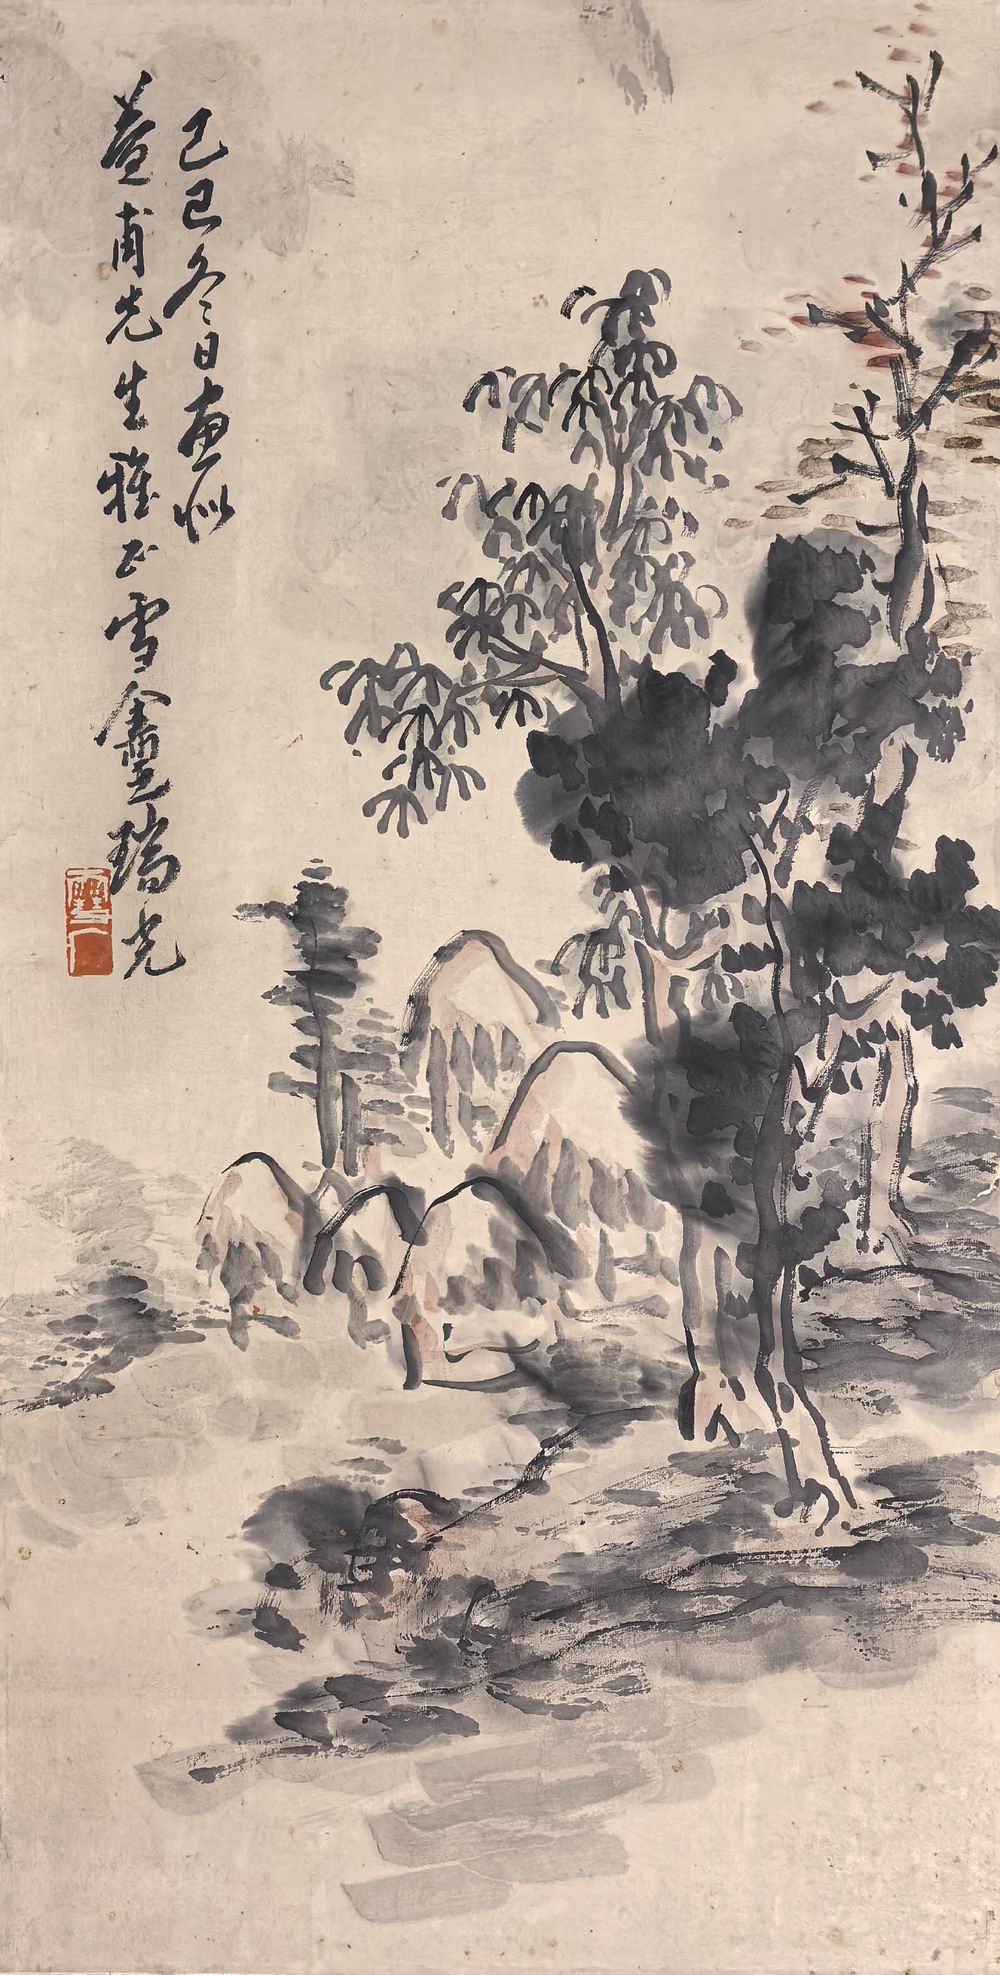 己巳冬日画似
葊甫先生雅正雪盦瑞光
雪厂